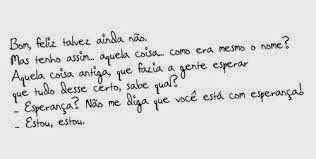 Bom, feliz talvez ainda não.
Mas tenho assim... aquela coisa... como era mesmo o nome?
Aquela coisa antiga, que fazia a gente esperar
que tudo desse certo, sabe qual?
- Esperança? Não me diga que você está com esperança!
- Estou, estou.